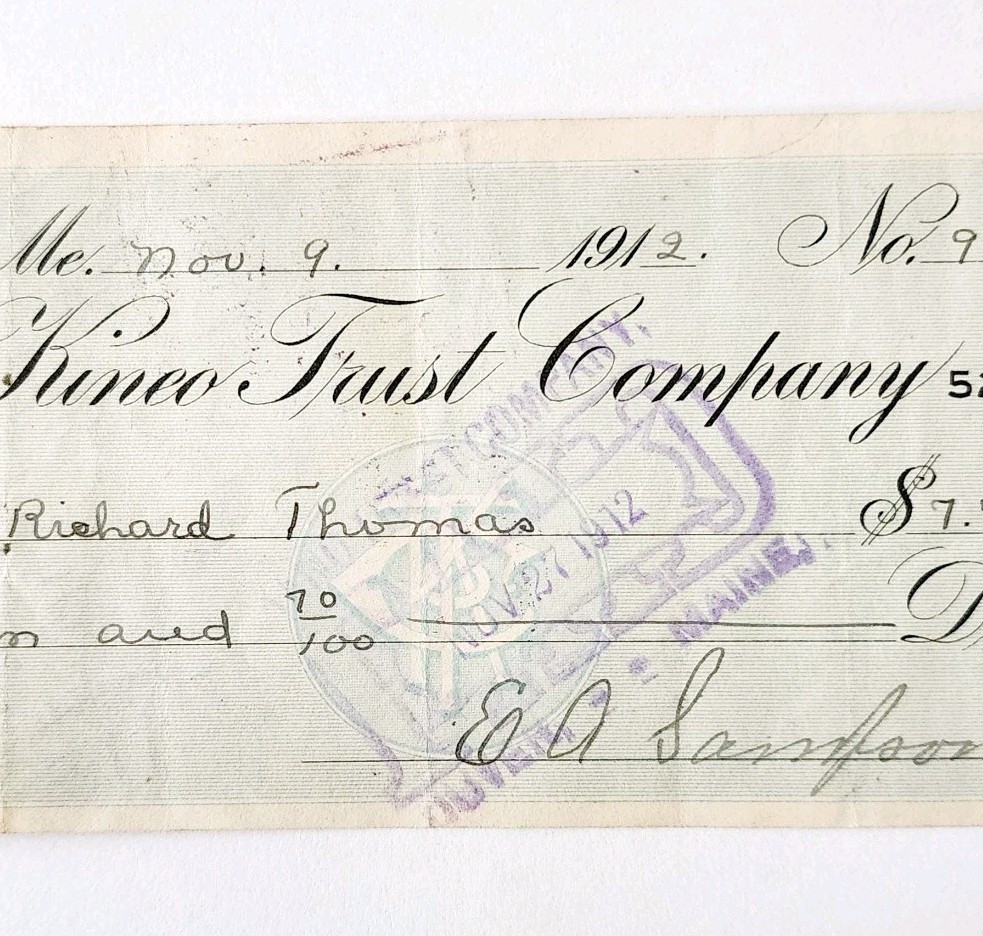 Me. Nov. 9. 1912. No. 9
Kineo Trust Company 52
Richard Thomas $7.
n and 70/100 D
E A Sampson
TRUST COMPANY.
NOV 27 1912
DOVER, MAINE.